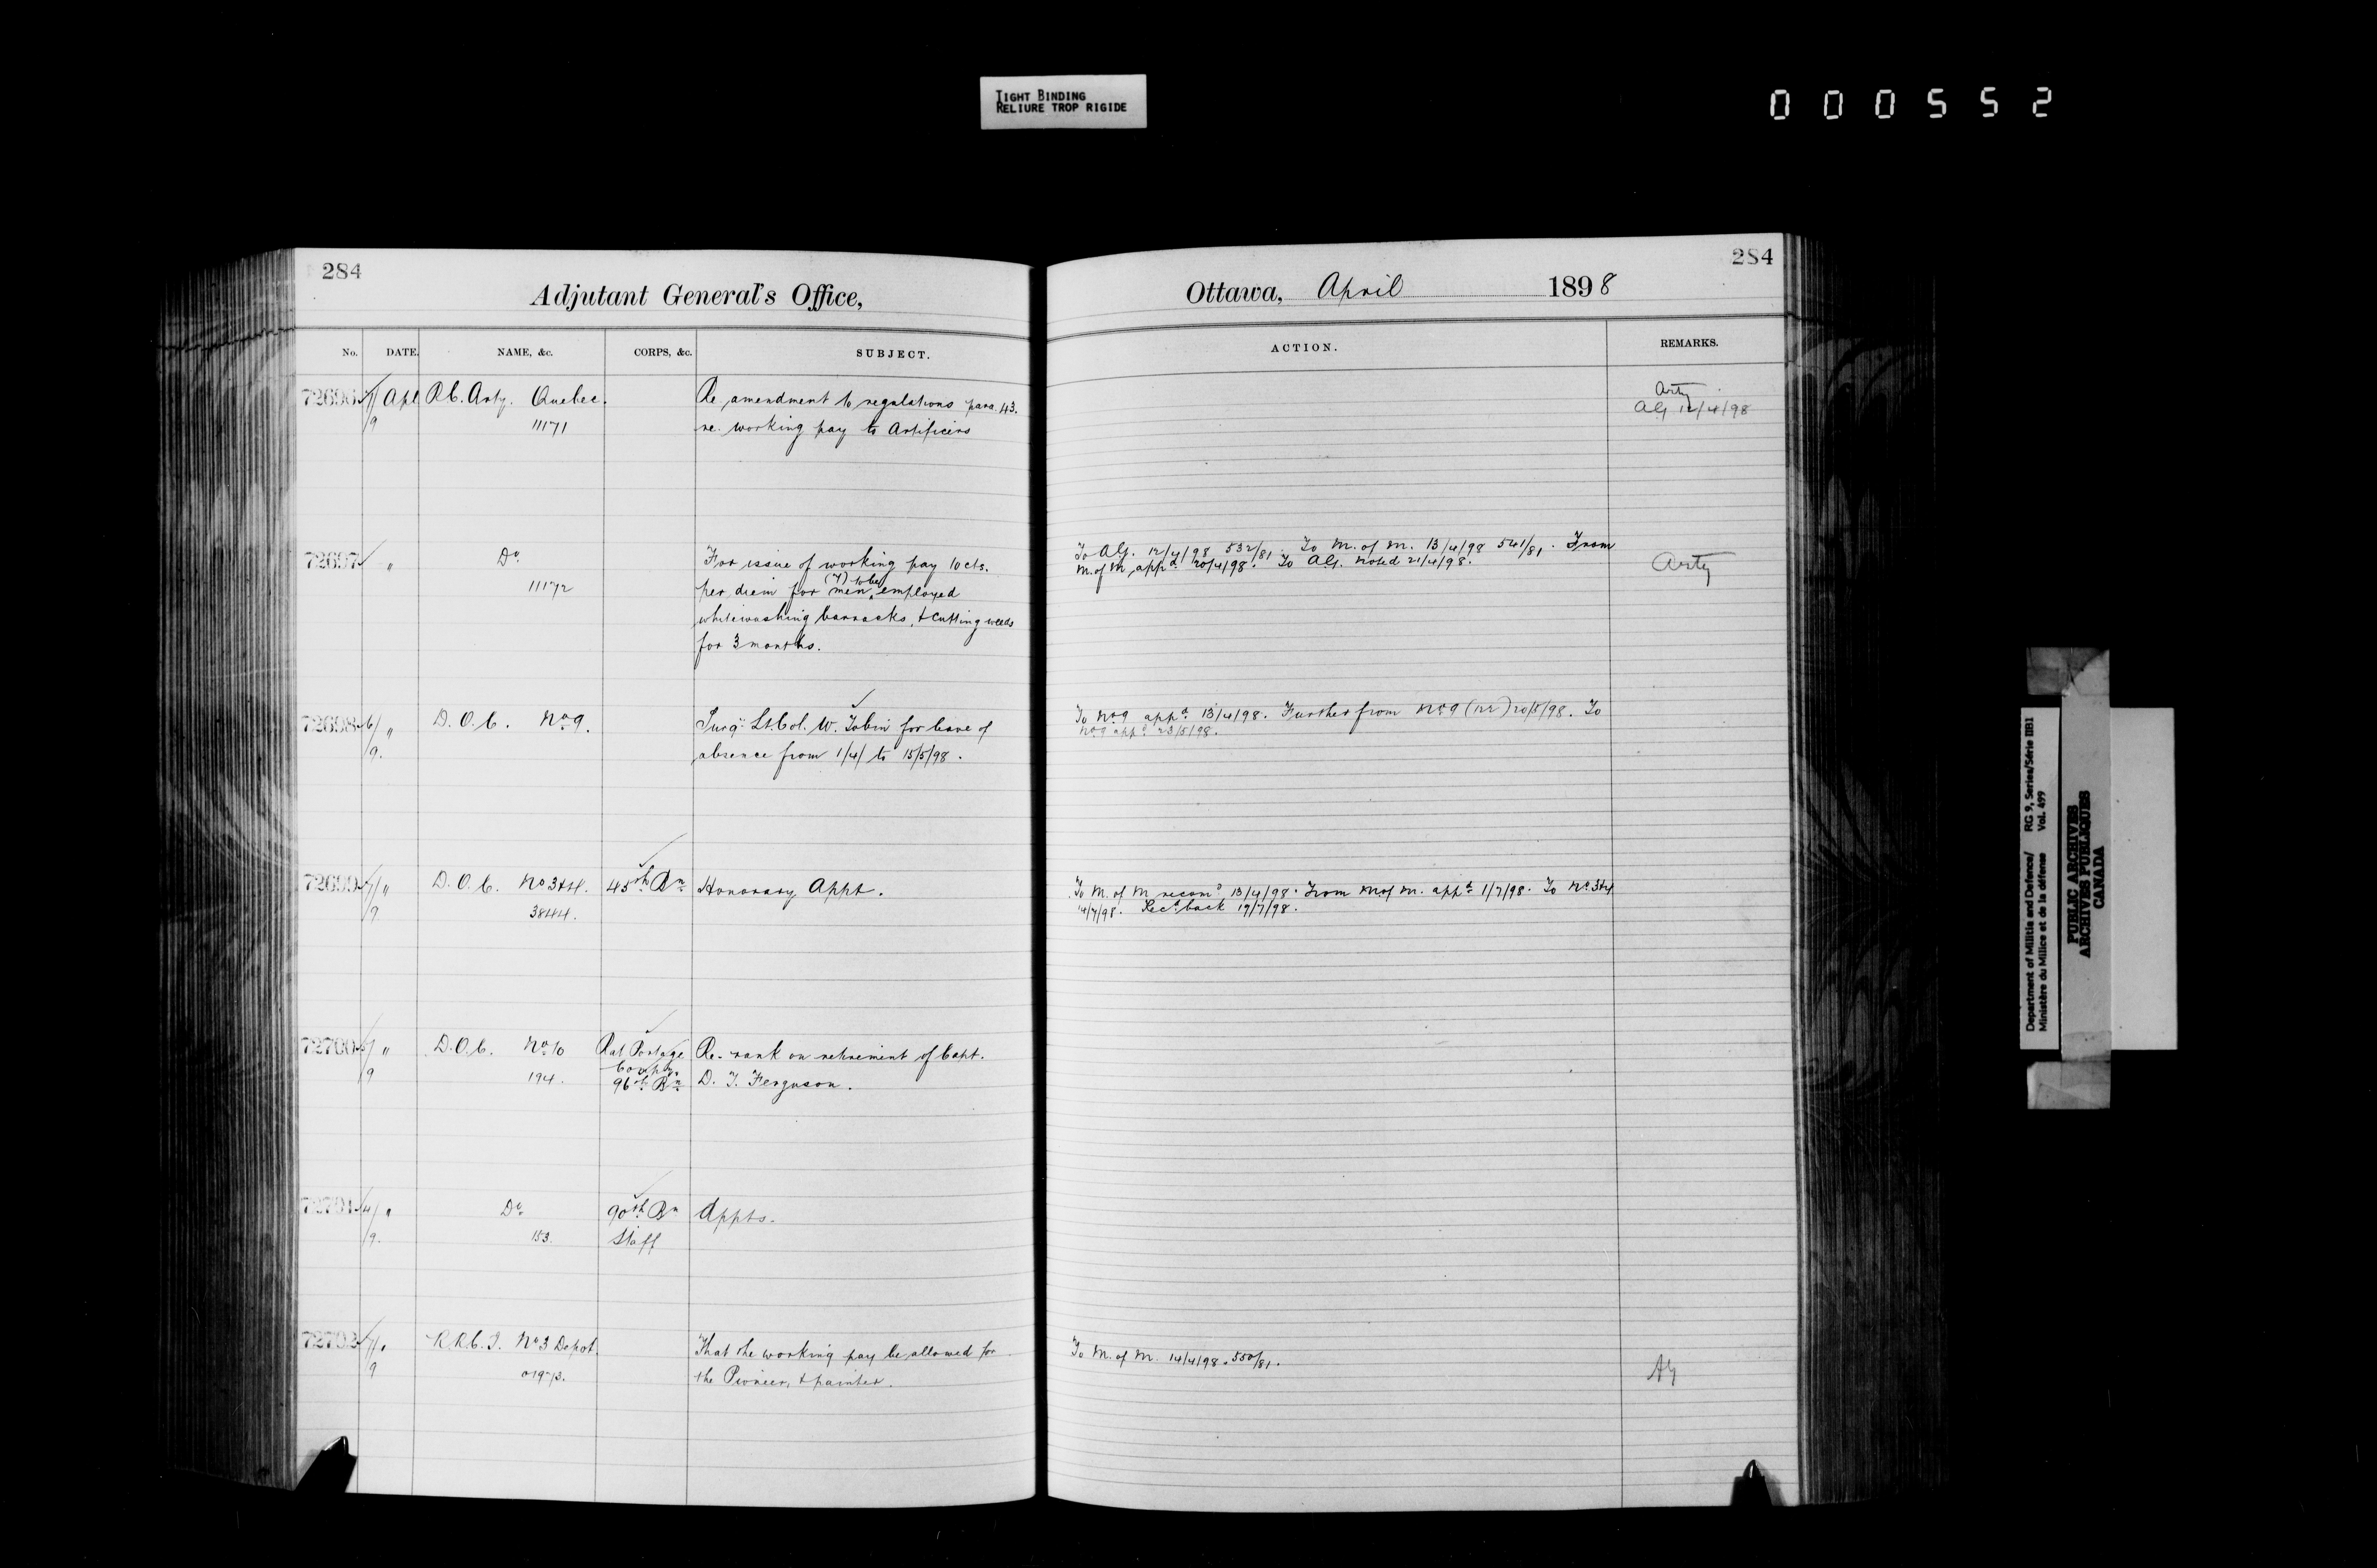 TIGHT BINDING
RELIURE TROP RIGIDE
000552
284
Adjutant General's Office,
No. DATE. NAME, &c. CORPS, &c. SUBJECT.
72696 7/9 Apl R.C. Arty. Quebec. Re amendment to regulations para. 43.
11171 re. working pay to Artificers
72697 " Do. For issue of working pay 10 cts.
11172 per diem for (7) men to be employed
whitewashing barracks, & cutting weeds
for 3 months.
72698 6/9 " D.O.C. No. 9. Surg. Lt. Col. W. Tobin for leave of
absence from 1/4/ to 15/5/98.
72699 7/9 " D.O.C. No 3&4. 45th Bn Honorary Appt.
3844.
72700 5/9 " D.O.C. No. 10 Rat Portage Re- rank on retirement of Capt.
Compy.
194. 96th Bn D. T. Ferguson.
72701 4/9 " Do. 90th Bn Appts.
153. Staff
72702 7/9 " R.R.C.I. No 3 Depot. That the working pay be allowed for
the Pioneer, & painter.
284
Ottawa, April 1898
ACTION. REMARKS.
Arty
AG 12/4/98
To AG. 12/4/98 532/81. To M. of M. 13/4/98 541/81. From
M. of M. appd. 20/4/98. To AG. noted 21/4/98. Arty
To No. 9 appd. 13/4/98. Further from No. 9 (122) 20/5/98. To
No. 9 appd. 23/5/98.
To M. of M. recomd. 13/4/98. From M of M. appd. 1/7/98. To No. 3&4
14/7/98. Recd. back 19/7/98.
To M. of M. 14/4/98. 550/81. AG
Department of Militia and Defence/ RG 9, Series/Série IIB1
Ministère du Milice et de la défense Vol. 499
PUBLIC ARCHIVES
ARCHIVES PUBLIQUES
CANADA